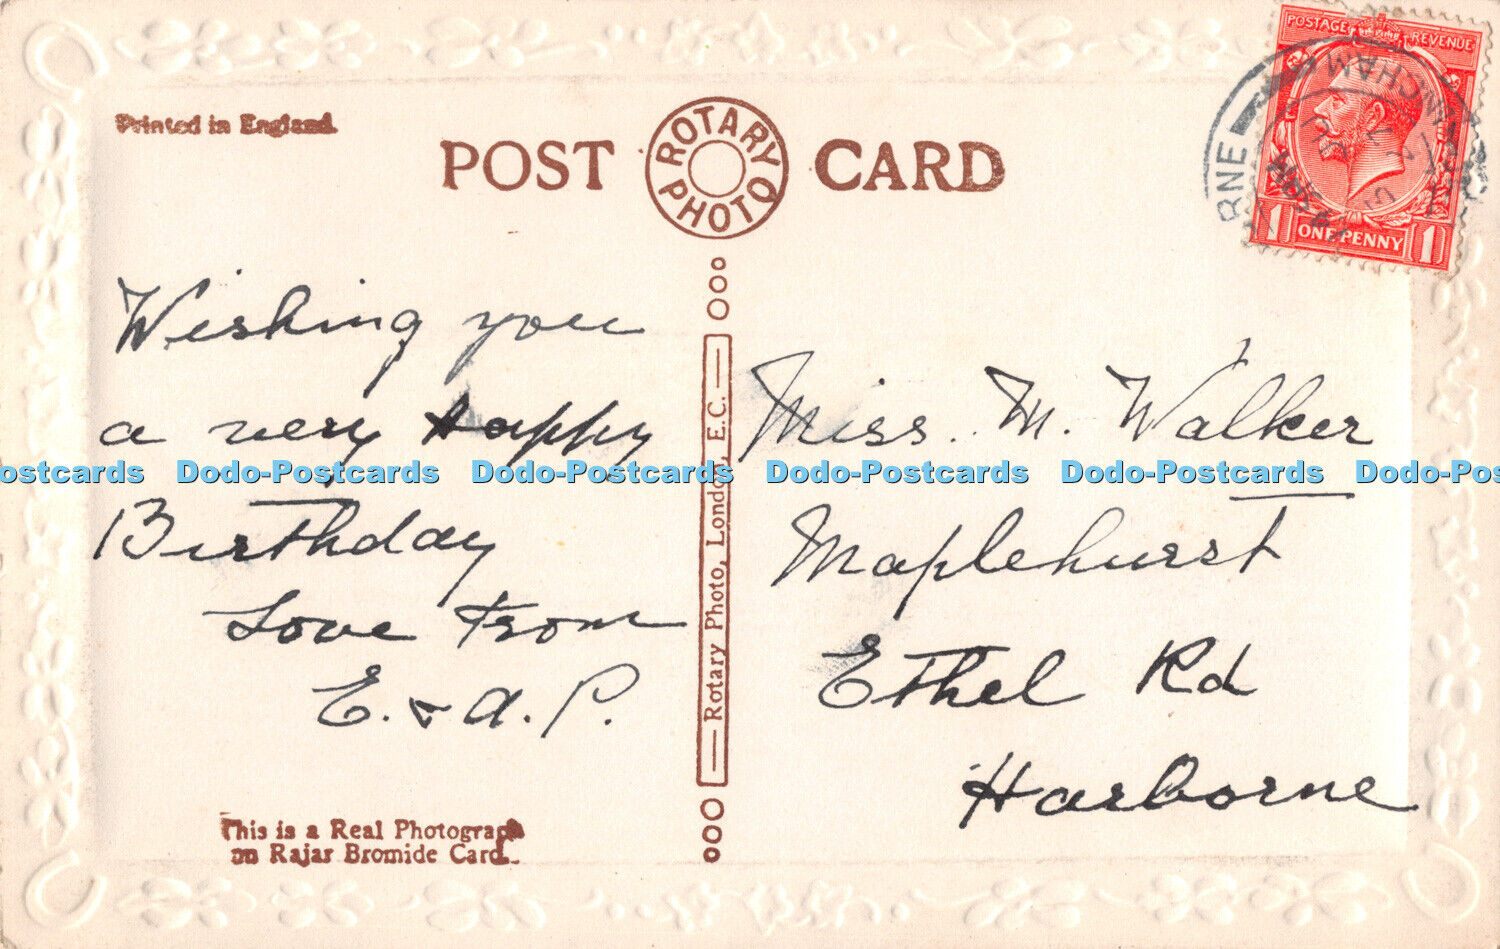 Printed in England.
POST CARD
ROTARY PHOTO
POSTAGE REVENUE
1 ONE PENNY 1
Wishing you
a very Happy
Birthday
Love From
E. & A. P.
This is a Real Photograph
on Rajar Bromide Card.
Rotary Photo, London, E.C.
Miss. M. Walker
Maplehurst
Ethel Rd
Harborne
Dodo-Postcards Dodo-Postcards Dodo-Postcards Dodo-Postcards Dodo-Postcards